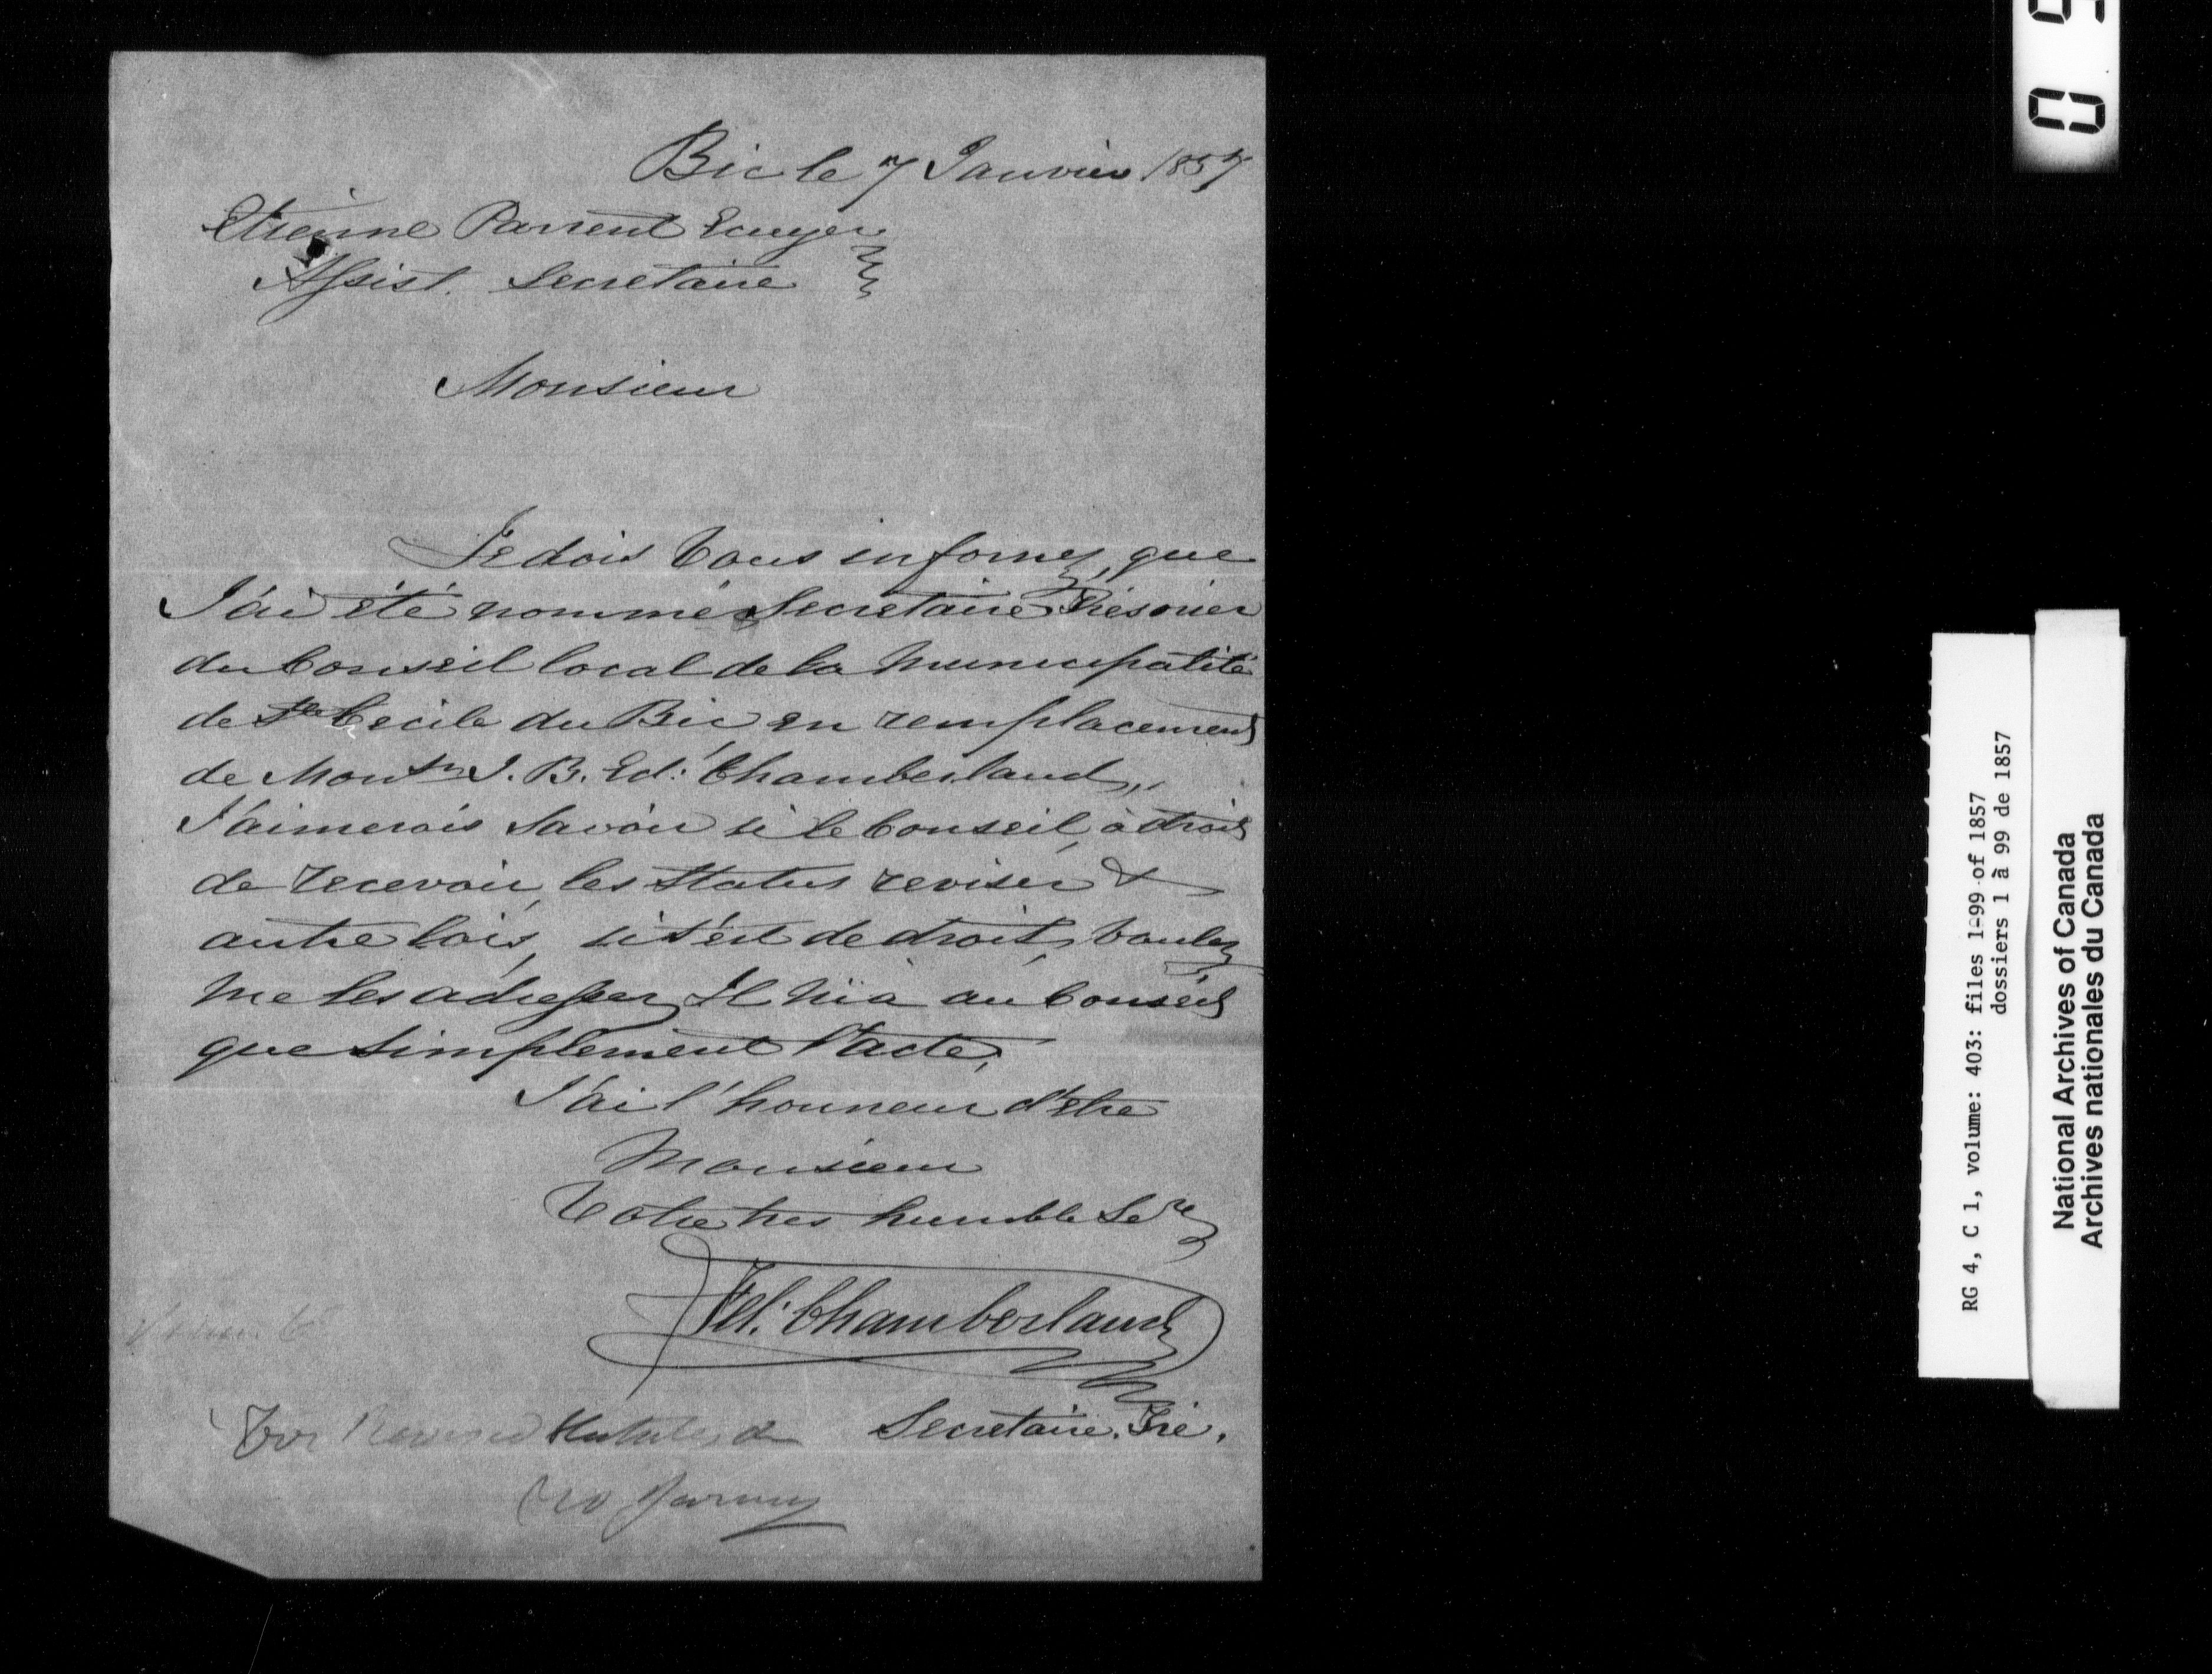 Bic le 7 Janvier 1857
Etienne Parrent Ecuyer
Assist. Secretaire
Monsieur
Je dois Vous informez, que
J'ai été nommé Secretaire Trésorier
du Conseil local de la Municipalité
de Ste Cecile du Bic en remplacement
de Monsr J. B. Ed: Chamberland,
J'aimerais Savoir si le Conseil, à droit
de recevoir, les Status reviser &
autre lois, si s'est de droit, Voulez
me les adresser, Il n'i à au Conseil
que simplement l'acte,
J'ai l'honneur d'etre
Monsieur
Votre tres humble Ser
Fel: Chamberland
Secretaire. Tré.
For Revised Statutes &
RG 4, C 1, volume: 403: files 1-99 of 1857
dossiers 1 à 99 de 1857
National Archives of Canada
Archives nationales du Canada